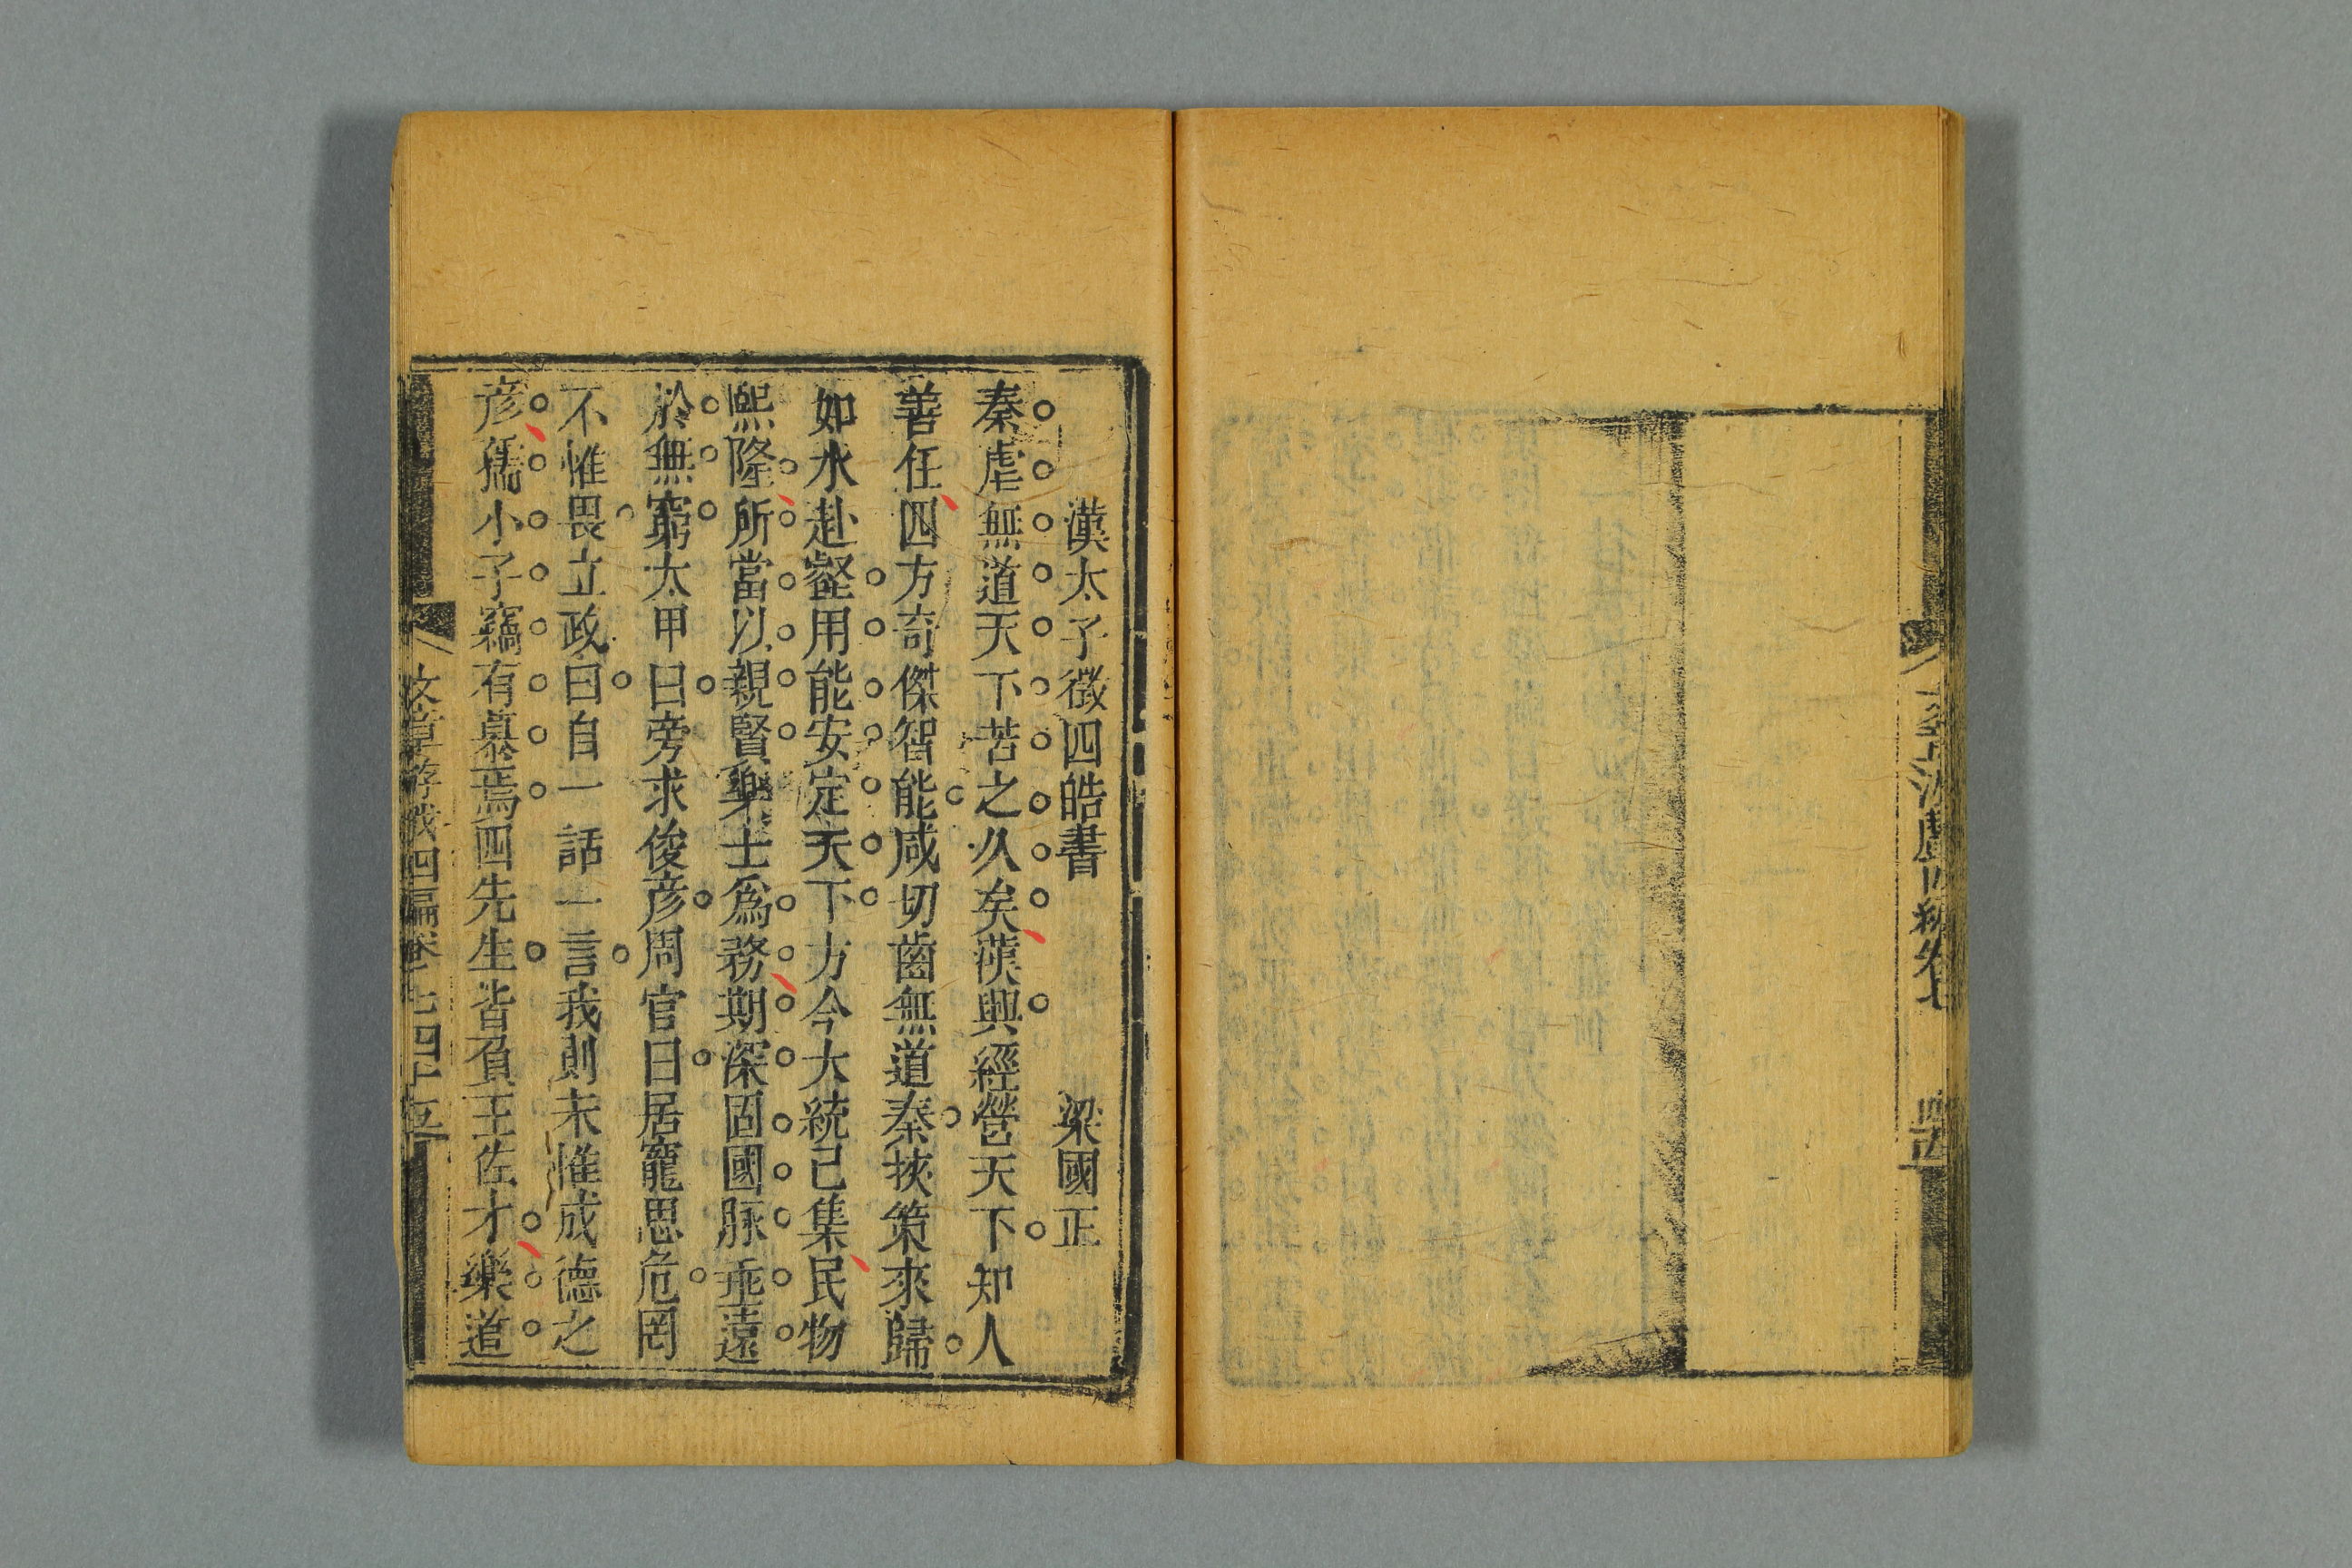 漢太子徵四皓書　梁國正
秦虐無道天下苦之久矣漢興經營天下知人
善任四方奇傑智能咸切齒無道秦挾策來歸
如水赴壑用能安定天下方今大統已集民物
熙隆所當以親賢樂士爲務期深固國脉垂遠
於無窮太甲曰旁求俊彦周官曰居寵思危罔
不惟畏立政曰自一話一言我則未惟成德之
彦孺小子竊有慕焉四先生皆負王佐才樂道
文章游戲四編卷七四十五